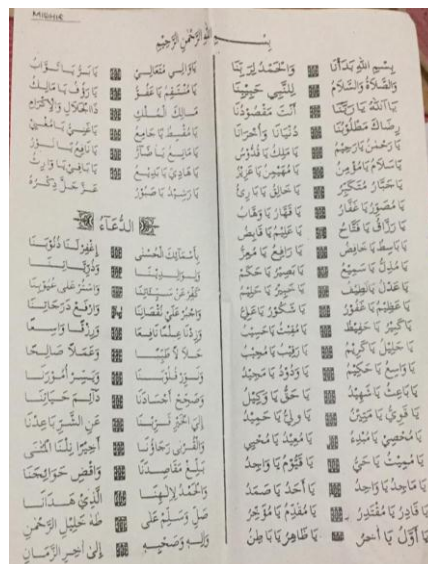 بِسْمِ اللهِ الرَّحْمٰنِ الرَّحِيْمِ
بِسْمِ اللهِ بَدَأْنَا وَالْحَمْدُ لِرَبِّنَا
وَالصَّلَاةُ وَالسَّلَامُ لِلنَّبِيِّ حَبِيْبِنَا
يَا اَللهُ يَا رَبَّنَا أَنْتَ مَقْصُوْدُنَا
رِضَاكَ مَطْلُوْبُنَا دُنْيَانَا وَأُخْرَانَا
يَا رَحْمٰنُ يَا رَحِيْمُ يَا مَلِكُ يَا قُدُّوْسُ
يَا سَلَامُ يَا مُؤْمِنُ يَا مُهَيْمِنُ يَا عَزِيْزُ
يَا جَبَّارُ مُتَكَبِّرُ يَا خَالِقُ يَا بَارِئُ
يَا مُصَوِّرُ يَا غَفَّارُ يَا قَهَّارُ يَا وَهَّابُ
يَا رَزَّاقُ يَا فَتَّاحُ يَا عَلِيْمُ يَا قَابِضُ
يَا بَاسِطُ يَا خَافِضُ يَا رَافِعُ يَا مُعِزُّ
يَا مُذِلُّ يَا سَمِيْعُ يَا بَصِيْرُ يَا حَكَمُ
يَا عَدْلُ يَا لَطِيْفُ يَا خَبِيْرُ يَا حَلِيْمُ
يَا عَظِيْمُ يَا غَفُوْرُ يَا شَكُوْرُ يَا عَلِيُّ
يَا كَبِيْرُ يَا حَفِيْظُ يَا مُقِيْتُ يَا حَسِيْبُ
يَا جَلِيْلُ يَا كَرِيْمُ يَا رَقِيْبُ يَا مُجِيْبُ
يَا وَاسِعُ يَا حَكِيْمُ يَا وَدُوْدُ يَا مَجِيْدُ
يَا بَاعِثُ يَا شَهِيْدُ يَا حَقُّ يَا وَكِيْلُ
يَا قَوِيُّ يَا مَتِيْنُ يَا وَلِيُّ يَا حَمِيْدُ
يَا مُحْصِيْ يَا مُبْدِئُ يَا مُعِيْدُ يَا مُحْيِي
يَا مُمِيْتُ يَا حَيُّ يَا قَيُّوْمُ يَا وَاجِدُ
يَا مَاجِدُ يَا وَاحِدُ يَا أَحَدُ يَا صَمَدُ
يَا قَادِرُ يَا مُقْتَدِرُ يَا مُقَدِّمُ يَا مُؤَخِّرُ
يَا أَوَّلُ يَا أٰخِرُ يَا ظَاهِرُ يَا بَاطِنُ
يَا وَالِيْ مُتَعَالِيْ يَا بَرُّ يَا تَوَّابُ
يَا مُنْتَقِمُ يَا عَفُوُّ يَا رَؤُوْفُ يَا مَالِكُ
مَالِكَ الْمُلْكِ ذَا الْجَلَالِ وَالْإِكْرَامِ
يَا مُقْسِطُ يَا جَامِعُ يَا غَنِيُّ يَا مُغْنِيْ
يَا مَانِعُ يَا ضَآرُّ يَا نَافِعُ يَا نُوْرُ
يَا هَادِيْ يَا بَدِيْعُ يَا بَاقِيْ يَا وَارِثُ
يَا رَشِيْدُ يَا صَبُوْرُ عَزَّ جَلَّ ذِكْرُهُ
الدُّعَاءُ
بِأَسْمَائِكَ الْحُسْنٰى إِغْفِرْ لَنَا ذُنُوْبَنَا
وَلِوَالِدِيْنَا وَذُرِّيَّاتِنَا
كَفِّرْ عَنْ سَيِّئَاتِنَا وَاسْتُرْ عَلٰى عُيُوْبِنَا
وَاجْبُرْ عَلٰى نُقْصَانِنَا وَارْفَعْ دَرَجَاتِنَا
وَزِدْنَا عِلْمًا نَافِعًا وَرِزْقًا وَاسِعًا
حَلَالًا طَيِّبًا وَعَمَلًا صَالِحًا
وَنَوِّرْ قُلُوْبَنَا وَيَسِّرْ أُمُوْرَنَا
وَصَحِّحْ أَجْسَادَنَا دَآئِمَ حَيَاتِنَا
إِلَى الْخَيْرِ قَرِّبْنَا عَنِ الشَّرِّ بَاعِدْنَا
وَالْقُرْبٰى رَجَاؤُنَا أَخِيْرًا نِلْنَا الْمُنٰى
بَلِّغْ مَقَاصِدَنَا وَاقْضِ حَوَائِجَنَا
وَالْحَمْدُ لِإِلٰهِنَا الَّذِيْ هَدَانَا
صَلِّ وَسَلِّمْ عَلٰى طٰهٰ خَلِيْلِ الرَّحْمٰنِ
وَاٰلِهِ وَصَحْبِهِ إِلٰى اٰخِرِ الزَّمَانِ